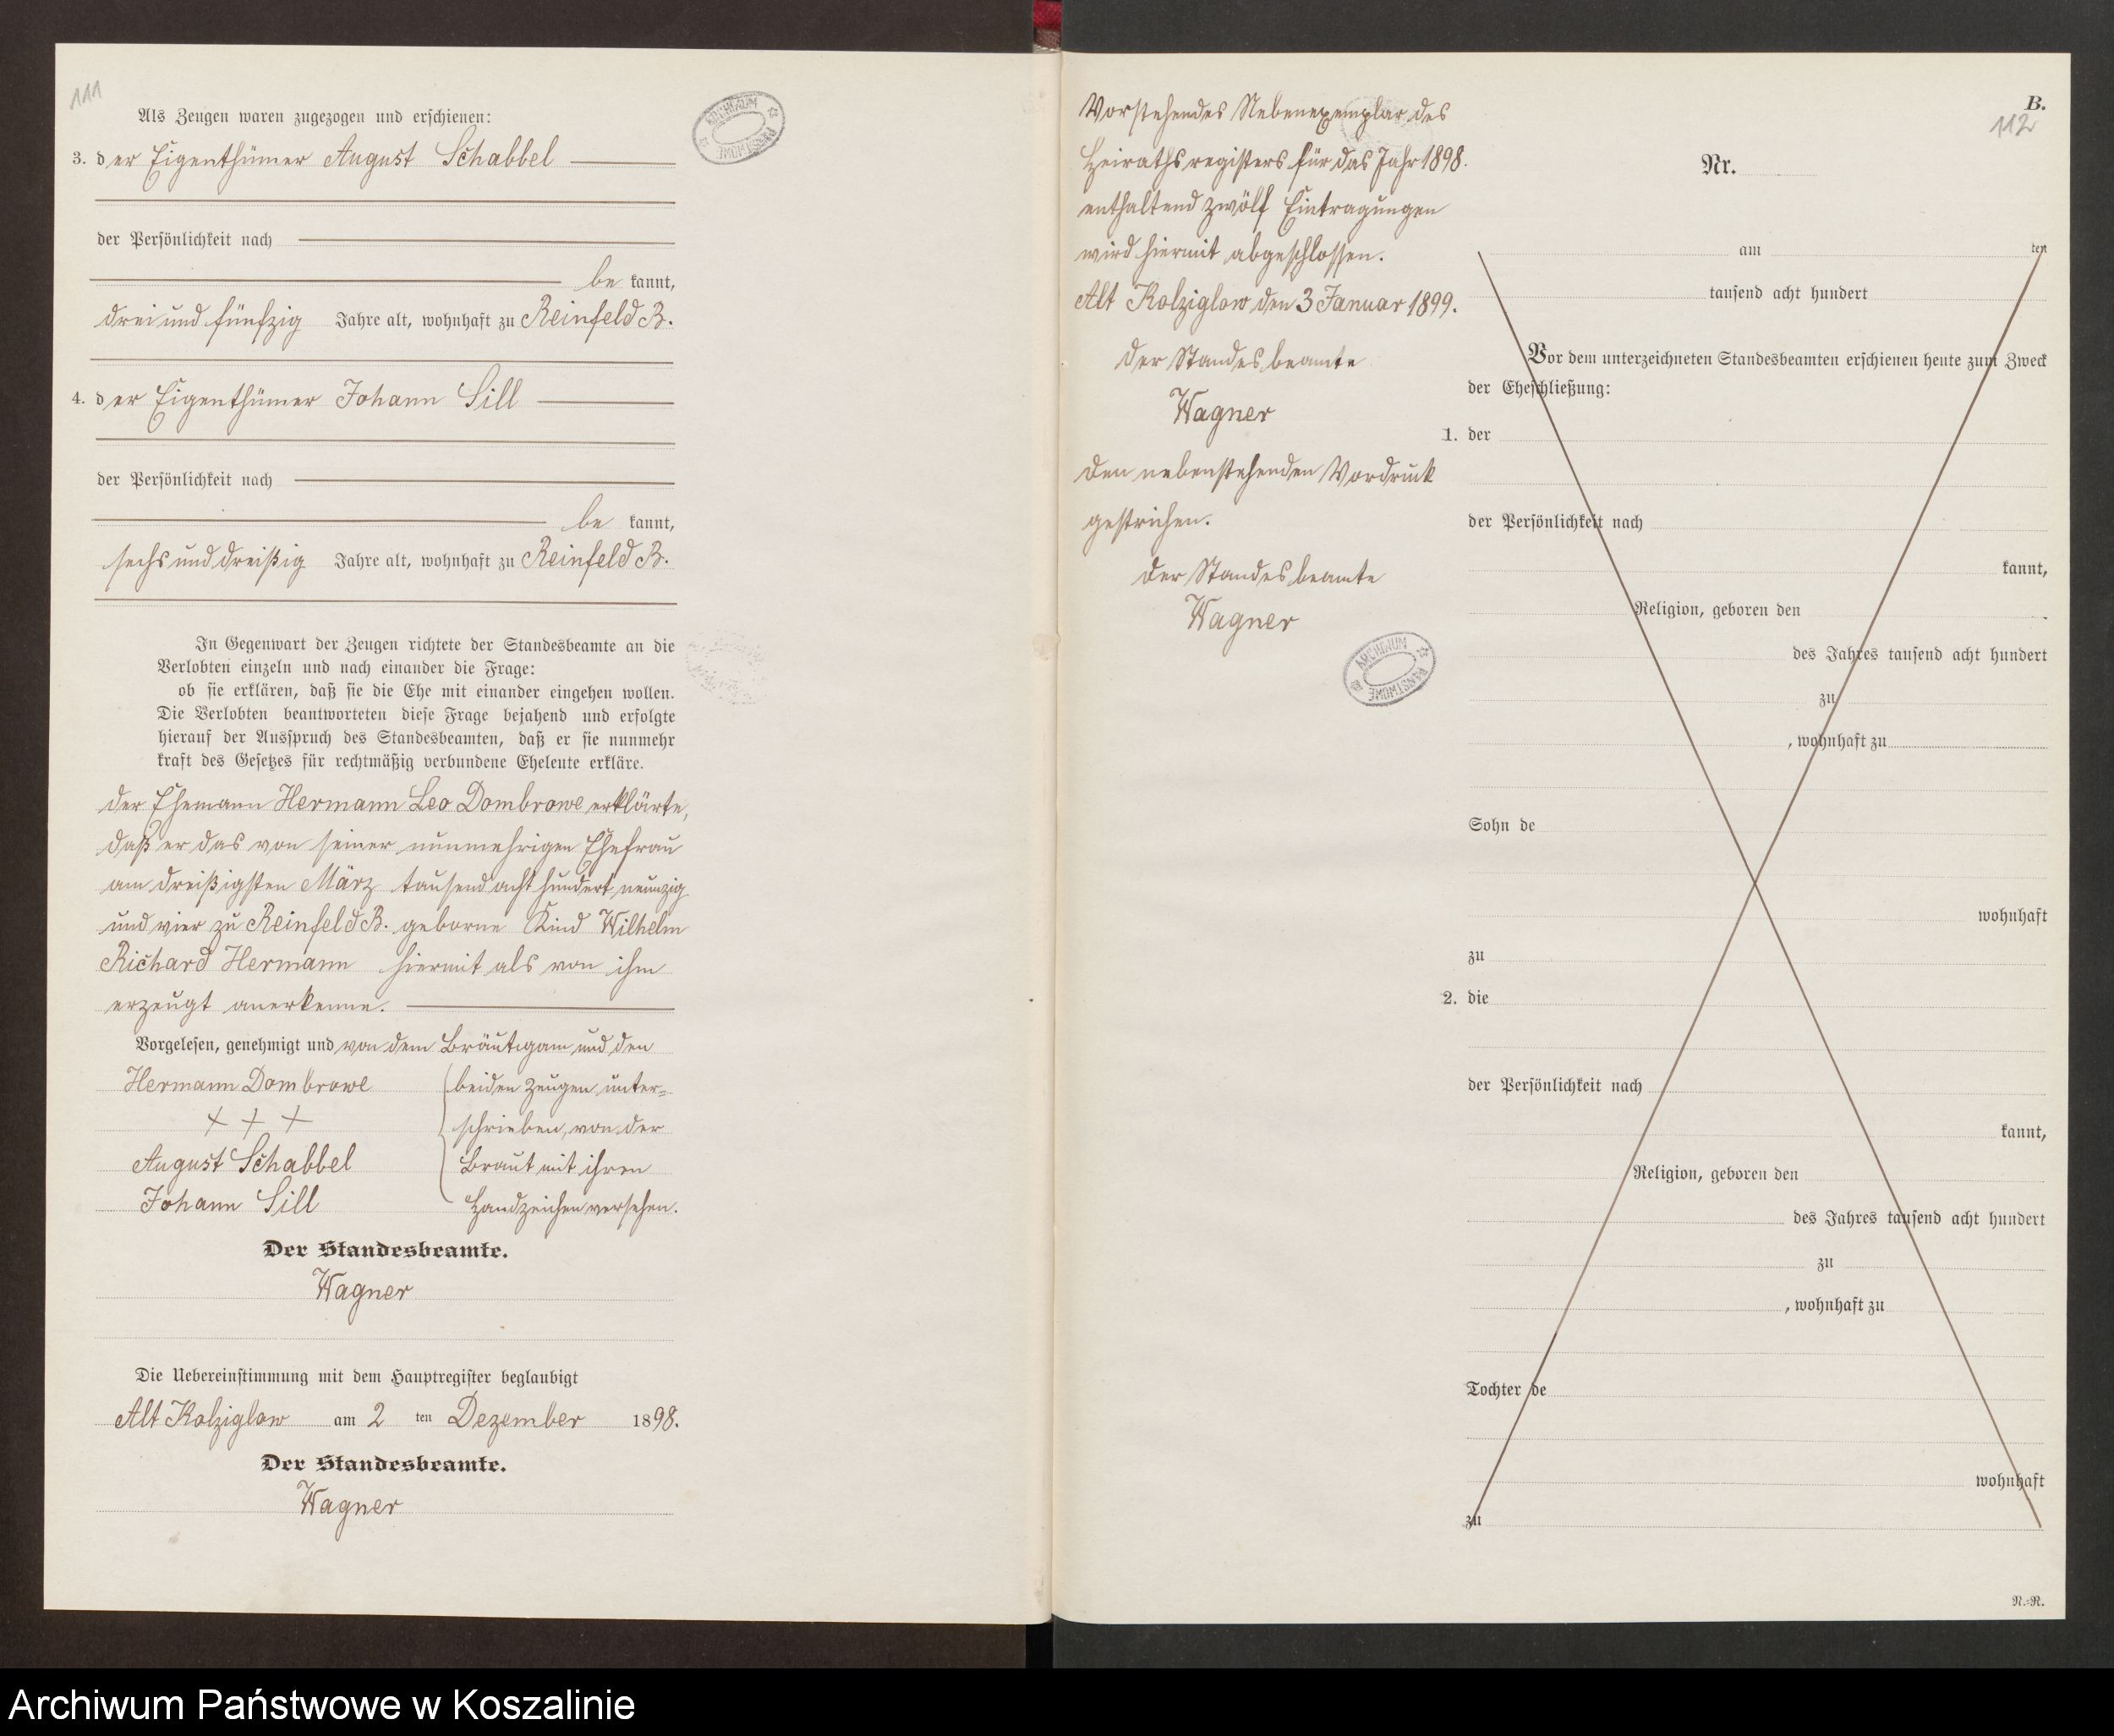 111
Als Zeugen waren zugezogen und erschienen:
3. der Eigenthümer August Schabbel
der Persönlichkeit nach
be kannt,
drei und fünfzig Jahre alt, wohnhaft zu Reinfeld B.
4. der Eigenthümer Johann Sill
der Persönlichkeit nach
be kannt,
sechs und dreißig Jahre alt, wohnhaft zu Reinfeld B.
In Gegenwart der Zeugen richtete der Standesbeamte an die
Verlobten einzeln und nach einander die Frage:
ob sie erklären, daß sie die Ehe mit einander eingehen wollen.
Die Verlobten beantworteten diese Frage bejahend und erfolgte
hierauf der Ausspruch des Standesbeamten, daß er sie nunmehr
kraft des Gesetzes für rechtmäßig verbundene Eheleute erkläre.
Der Ehemann Hermann Leo Dombrowe erklärte,
daß er das von seiner nunmehrigen Ehefrau
am dreißigsten März tausend acht hundert neunzig
und vier zu Reinfeld B. geborne Kind Wilhelm
Richard Hermann hiermit als von ihm
erzeugt anerkenne.
Vorgelesen, genehmigt und von dem Bräutigam und den
Hermann Dombrowe beiden Zeugen unter-
+ + + schrieben, von der
August Schabbel Braut mit ihren
Johann Sill Handzeichen versehen.
Der Standesbeamte.
Wagner
Die Uebereinstimmung mit dem Hauptregister beglaubigt
Alt Kolziglow am 2 ten Dezember 1898.
Der Standesbeamte.
Wagner
Vorstehendes Nebenexemplar des
Heirathsregisters für das Jahr 1898.
enthaltend zwölf Eintragungen
wird hiermit abgeschlossen.
Alt Kolziglow den 3 Januar 1899.
Der Standesbeamte
Wagner
Den nebenstehenden Vordruck
gestrichen.
Der Standesbeamte
Wagner
ARCHIWUM PAŃSTWOWE
B.
112
Nr.
am ten
tausend acht hundert
Vor dem unterzeichneten Standesbeamten erschienen heute zum Zweck
der Eheschließung:
1. der
der Persönlichkeit nach
kannt,
Religion, geboren den
des Jahres tausend acht hundert
zu
, wohnhaft zu
Sohn de
wohnhaft
zu
2. die
der Persönlichkeit nach
kannt,
Religion, geboren den
des Jahres tausend acht hundert
zu
, wohnhaft zu
Tochter de
wohnhaft
zu
N.-R.
Archiwum Państwowe w Koszalinie